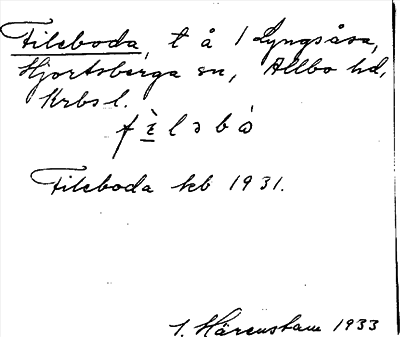 Fileboda, t å 1 Lyngsåsa,
Hjortsberga sn, Allbo hd,
Krbs l.
f ὲ l ə b ὼ
Fileboda kb 1931.
I. Härenstam 1933